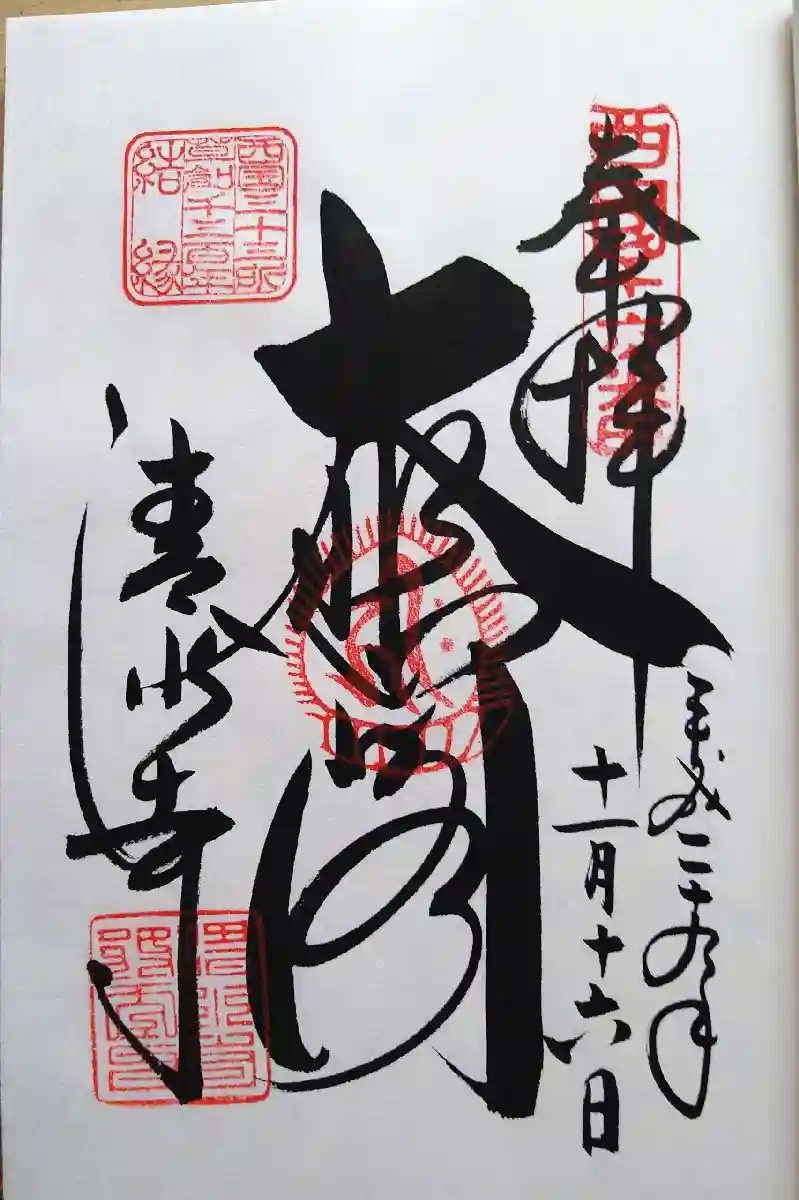 奉拝
西国十六番
平成二十九年
十一月十六日
大悲閣
清水寺
西国三十三所
草創千三百年
結縁